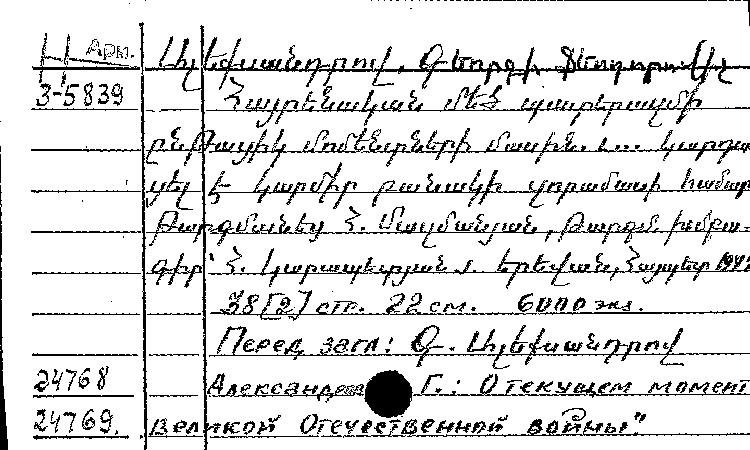 Арм. Ալեքսանդրով, Գեորգի Ֆեոդորովիչ
3-5839 Հայրենական մեծ պատերազմի
ընթացիկ մոմենտների մասին. ... կարդա-
ցել է կարմիր բանակի զորամասի համար
Թարգմանեց Հ. Մազմանյան, Թարգմ. խմբա-
գիր՝ Հ. Կարապետյան. Երևան, Հայպետ
38 [2] стр. 22 см. 6000 экз.
Перед загл: Գ. Ալեքսանդրով
24768 Александров Г.: О текущем момент
24769. великой Отечественной войны".